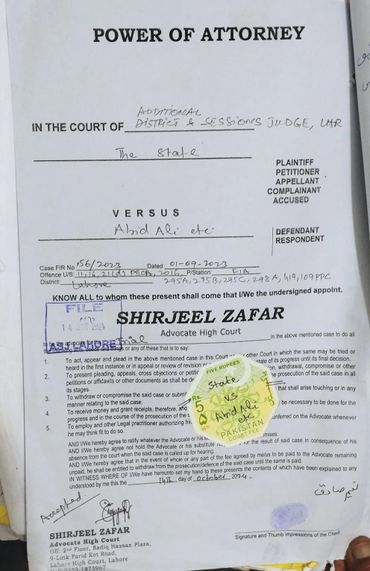 POWER OF ATTORNEY
ADDITIONAL
IN THE COURT OF DISTRICT & SESSIONS JUDGE, LHR
The State
PLAINTIFF
PETITIONER
APPELLANT
COMPLAINANT
ACCUSED
VERSUS
Abid Ali etc
DEFENDANT
RESPONDENT
Case FIR No 156/2023 Dated 01-09-2023
Offence U/S 11,16, 21(d) PECA, 2016, P/Station FIA
District Lahore 295A, 295B, 295C, 298A, 419, 109 PPC
KNOW ALL to whom these present shall come that I/We the undersigned appoint.
FILE
SHIRJEEL ZAFAR
Advocate High Court
ASJ, LAHORE
in the above mentioned case to do all
or any of these that is to say:
1. To act, appear and plead in the above mentioned case in this Court or any other Court in which the same may be tried or
heard in the first instance or in appeal or review or revision or its progress until its final decision.
2. To present pleading, appeals, cross objections or petitions withdrawal, compromise or other
petitions or affidavits or other documents as shall be prosecution of the said case in all
its stages.
3. To withdraw or compromise the said case or submit that shall arise touching or in any
manner relating to the said case.
4. To receive money and grant receipts, therefore, and be necessary to be done for the
progress and in the course of the prosecution of the
5. To employ and other Legal practitioner authorizing conferred on the Advocate whenever
he may think fit to do so.
FIVE RUPEES
RS 5
State
vs
Abid Ali
etc
PAKISTAN
AND I/We hereby agree to ratify whatever the Advocate or his
AND I/We hereby agree not hold the Advocate or his substitute for the result of said case in consequence of his
absence from the court when the said case is called up for hearing.
AND I/We hereby agree that in the event of whole or any part of the fee agreed by me/us to be paid to the Advocate remaining
unpaid, he shall be entitled to withdraw from the prosecution/defence of the said case until the same is paid.
IN WITNESS OF WHEREOF I/We have hereunto set my hand to these presents the contents of which have been explained to any
understood by me this the 14th day of October 2024.
Accepted
نسیم صادق
SHIRJEEL ZAFAR
Advocate High Court
Off: 2nd Floor, Sadiq Hassan Plaza,
9-Link Farid Kot Road,
Lahore High Court, Lahore
Signature and Thumb impressions of the Client